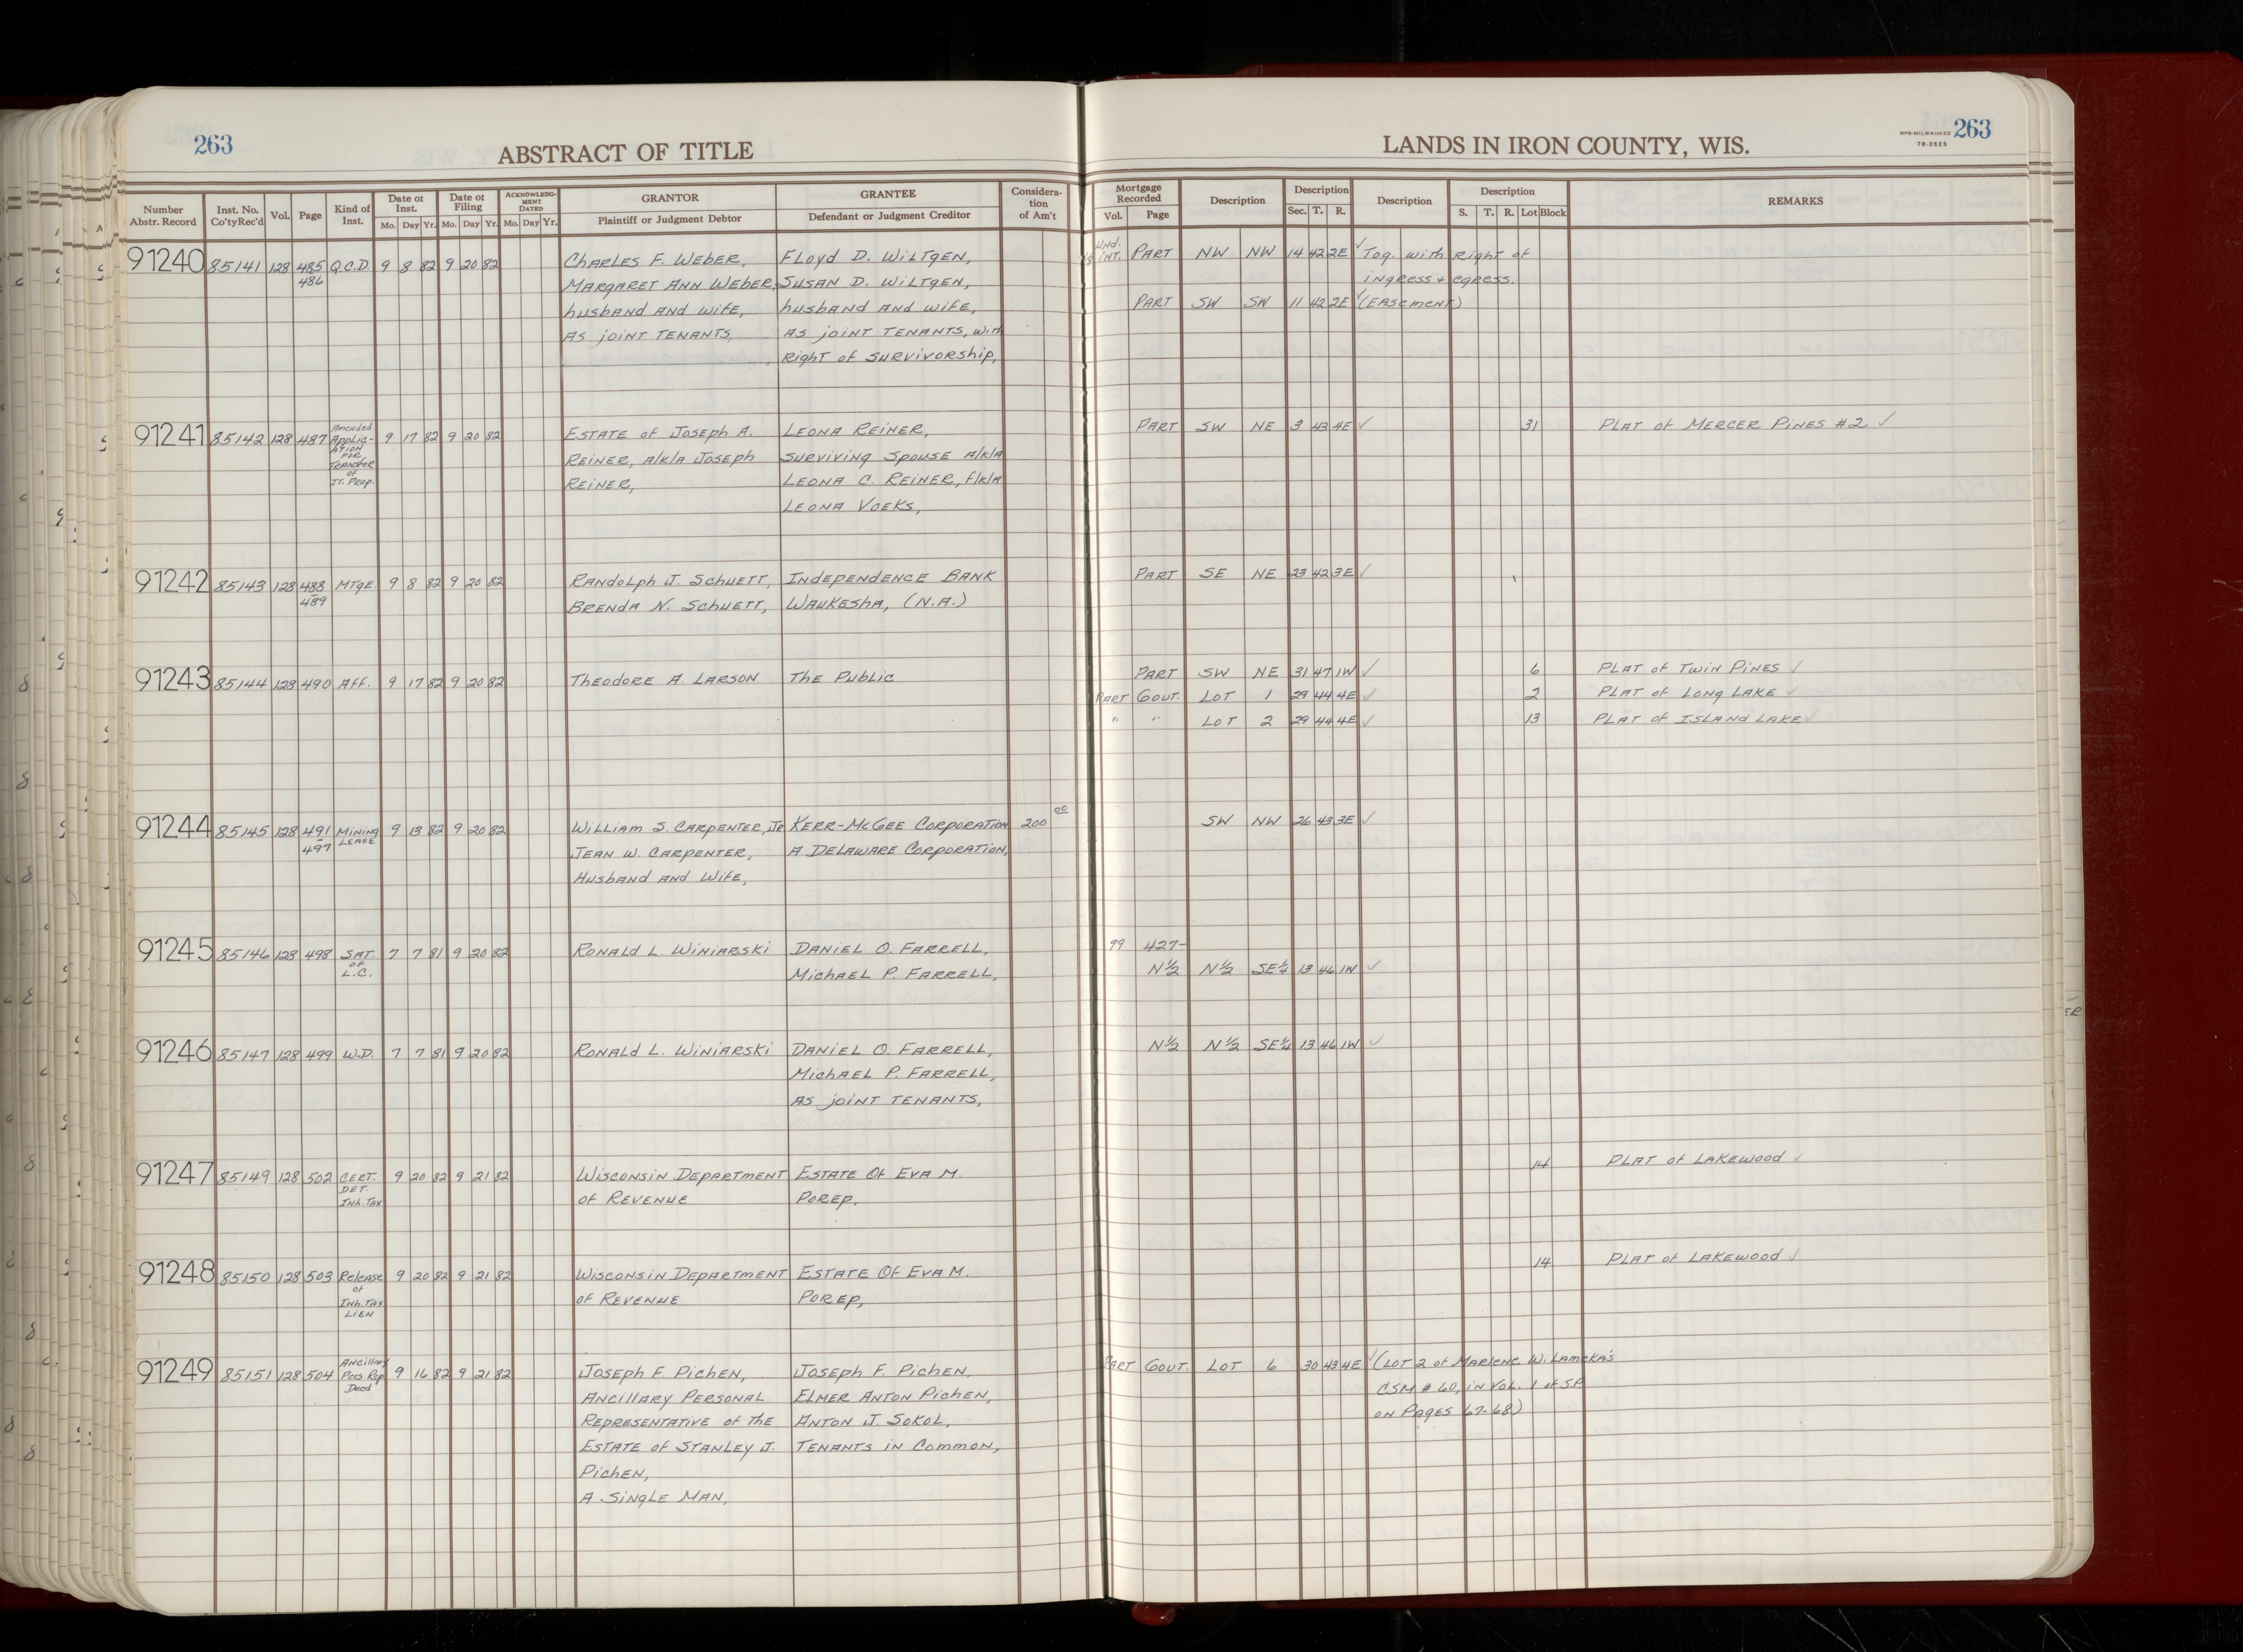 263
ABSTRACT OF TITLE
LANDS IN IRON COUNTY, WIS.
WPB-MILWAUKEE 263
78-3525
Number Abstr. Record Inst. No. Co'tyRec'd Vol. Page Kind of Inst. Date of Inst. Mo. Day Yr. Date of Filing Mo. Day Yr. ACKNOWLEDGMENT DATED Mo. Day Yr. GRANTOR Plaintiff or Judgment Debtor GRANTEE Defendant or Judgment Creditor Considera-tion of Am't
Mortgage Recorded Vol. Page Description Description Sec. T. R. Description Description S. T. R. Lot Block REMARKS
91240 85141 128 485 Q.C.D. 9 8 82 9 20 82 Charles F. Weber, Floyd D. Wiltgen, Und. Int. Part NW NW 14 42 2E ✓ Tog. with Right of
486 Margaret Ann Weber, Susan D. Wiltgen, ingress + egress.
husband and wife, husband and wife, Part SW SW 11 42 2E ✓ (Easement)
As joint tenants, As joint tenants, with
Right of survivorship,
91241 85142 128 487 Amended Applic-ation for Transfer of Jt. Prop. 9 17 82 9 20 82 Estate of Joseph A. Leona Reiner, Part SW NE 3 43 4E ✓ 31 Plat of Mercer Pines #2 ✓
Reiner, a/k/a Joseph surviving spouse a/k/a
Reiner, Leona C. Reiner, f/k/a
Leona Voeks,
91242 85143 128 488 Mtge 9 8 82 9 20 82 Randolph J. Schuett, Independence Bank Part SE NE 23 42 3E ✓
489 Brenda N. Schuett, Waukesha, (N.A.)
91243 85144 128 490 Aff. 9 17 82 9 20 82 Theodore A. Larson The Public Part SW NE 31 47 1W ✓ 6 Plat of Twin Pines ✓
Part Gout. Lot 1 29 44 4E ✓ 2 Plat of Long Lake ✓
" " Lot 2 29 44 4E ✓ 13 Plat of Island Lake ✓
91244 85145 128 491 Mining Lease 9 13 82 9 20 82 William S. Carpenter, Jr Kerr-McGee Corporation 200 00 SW NW 26 43 3E ✓
497 Jean W. Carpenter, A Delaware Corporation,
Husband and Wife,
91245 85146 128 498 Sat. of L.C. 7 7 81 9 20 82 Ronald L. Winiarski Daniel O. Farrell, 99 427-
Michael P. Farrell, N½ N½ SE¼ 13 46 1W ✓
91246 85147 128 499 W.D. 7 7 81 9 20 82 Ronald L. Winiarski Daniel O. Farrell, N½ N½ SE¼ 13 46 1W ✓
Michael P. Farrell,
As joint tenants,
91247 85149 128 502 Cert. Det. Inh. Tax 9 20 82 9 21 82 Wisconsin Department Estate Of Eva M. 14 Plat of Lakewood ✓
of Revenue Porep,
91248 85150 128 503 Release of Inh. Tax Lien 9 20 82 9 21 82 Wisconsin Department Estate Of Eva M. 14 Plat of Lakewood ✓
of Revenue Porep,
91249 85151 128 504 Ancillary Pers. Rep Deed 9 16 82 9 21 82 Joseph F. Pichen, Joseph F. Pichen, Part Gout. Lot 6 30 43 4E ✓ (Lot 2 of Marlene W. Lameka's
Ancillary Personal Elmer Anton Pichen, CSM # 60, in Vol. 1 of SP
Representative of the Anton J. Sokol, on Pages 67-68)
Estate of Stanley J. Tenants in Common,
Pichen,
A Single Man,